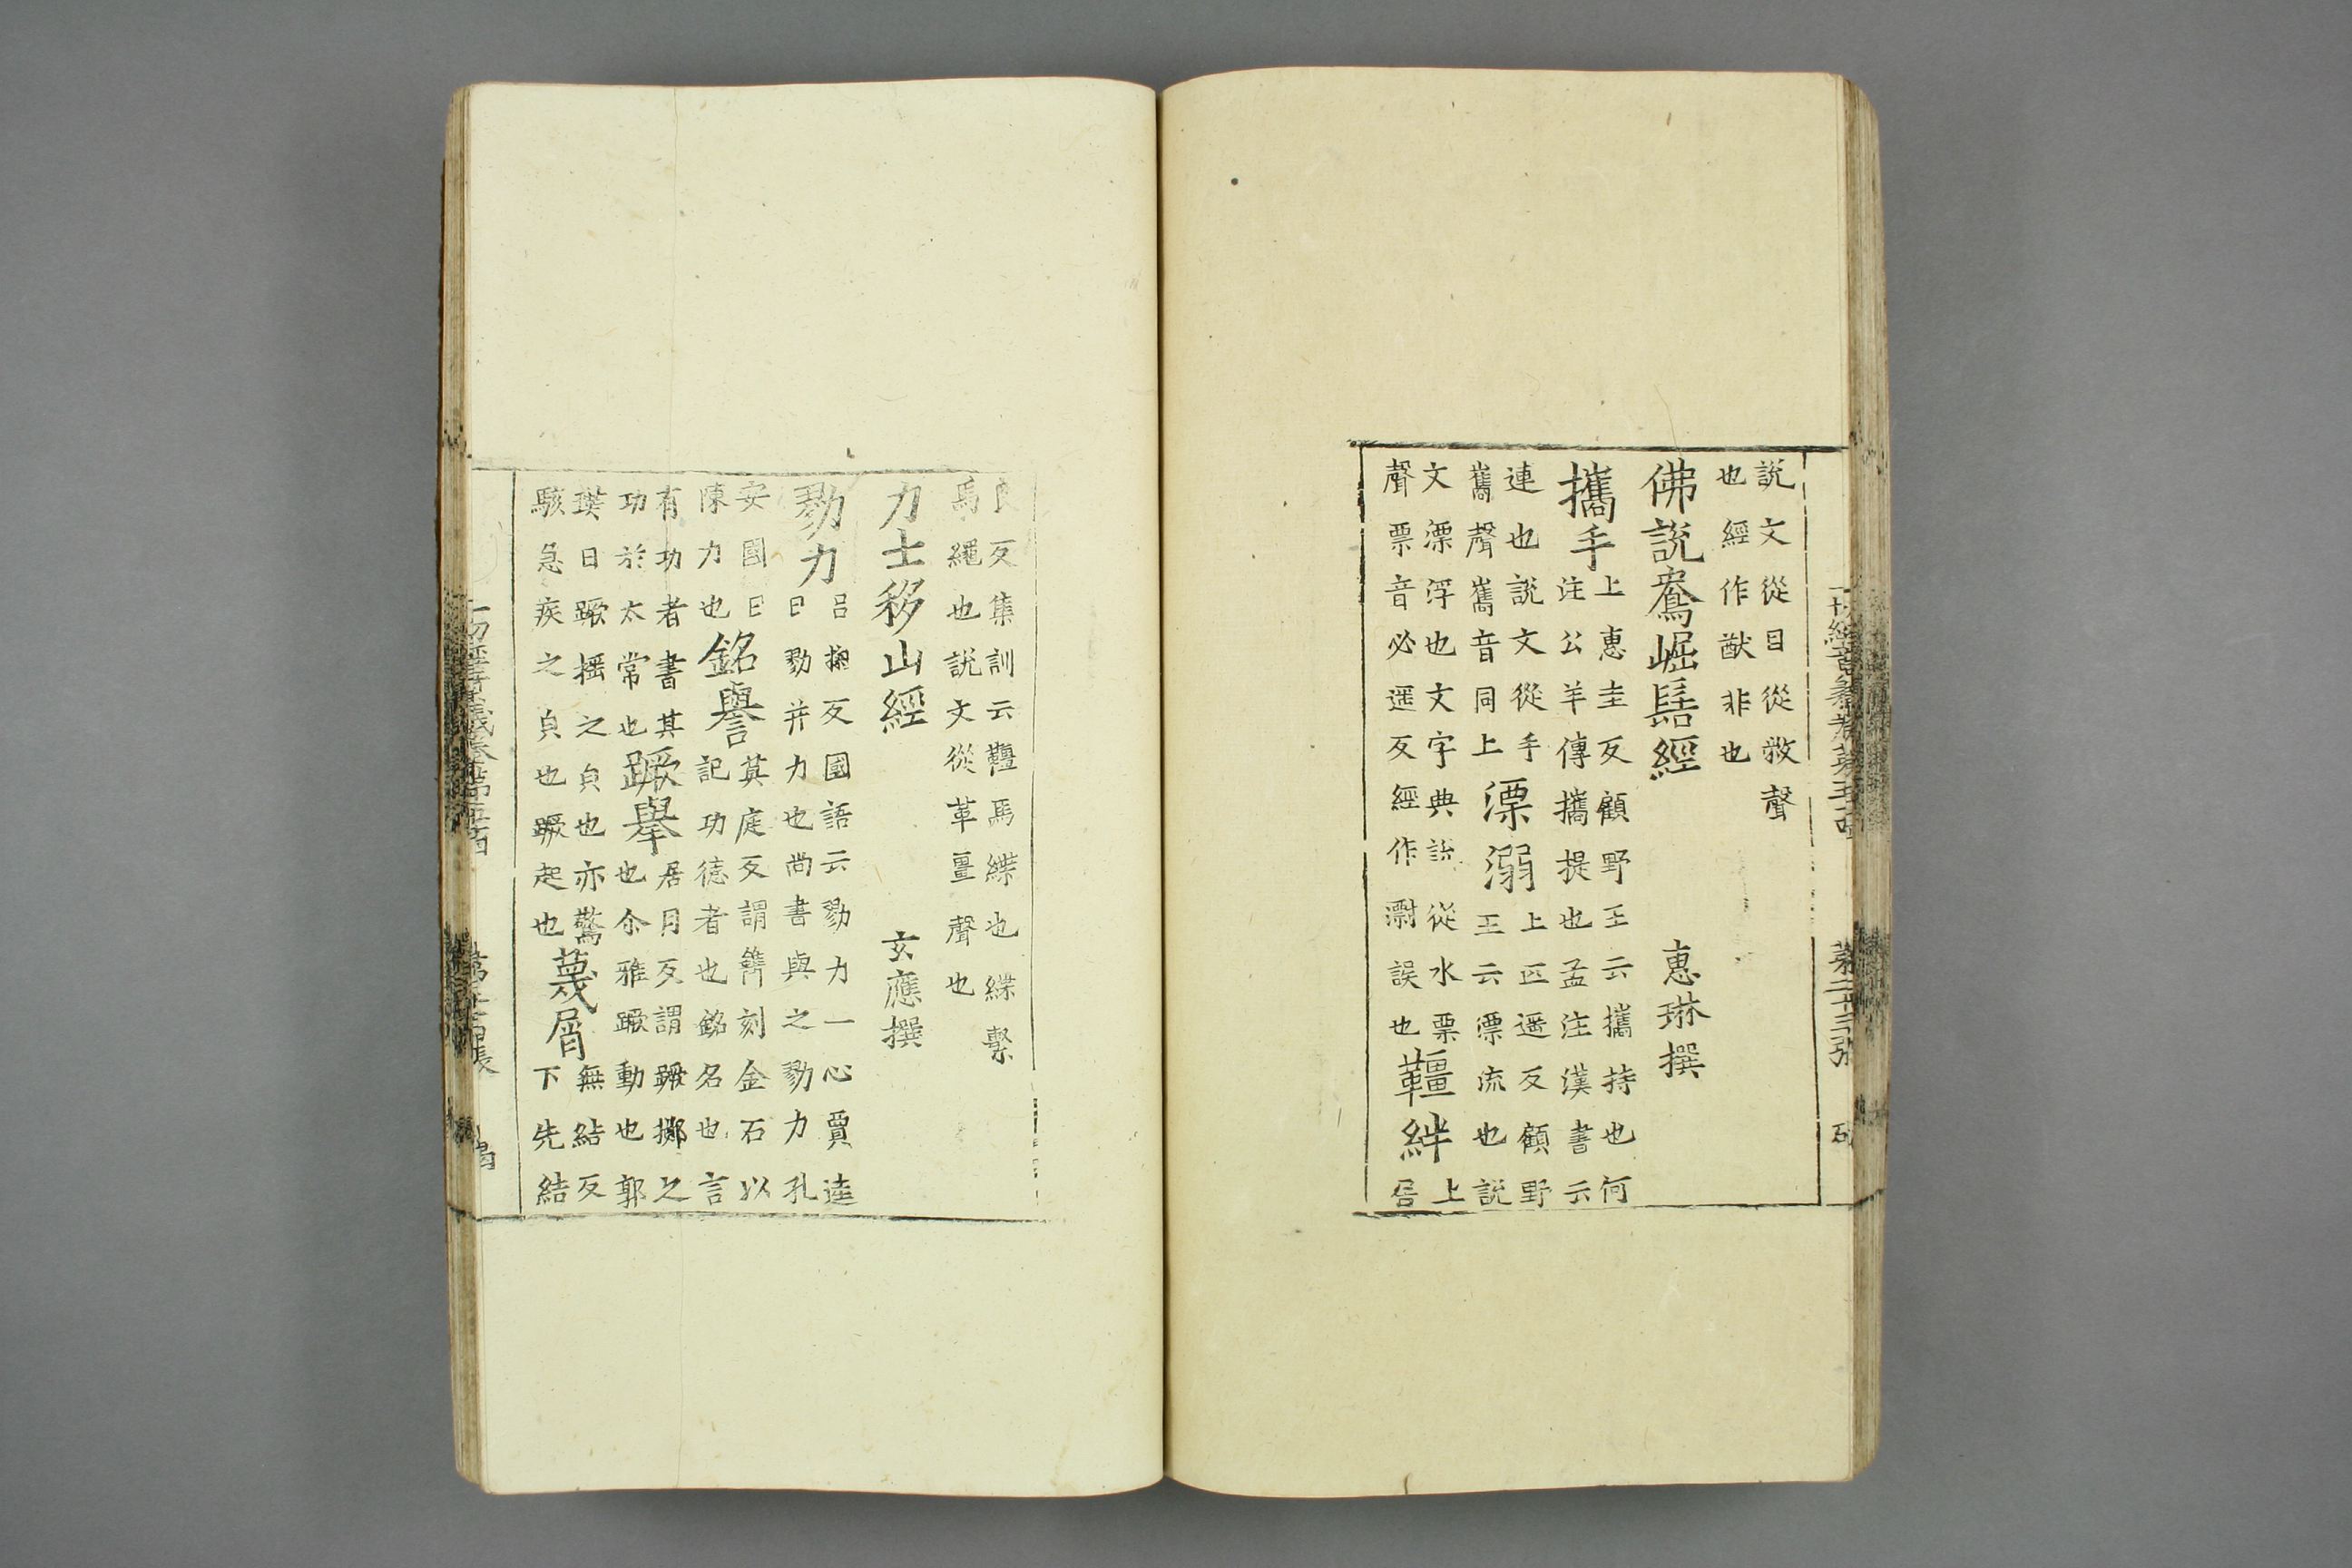 說文從目從敝聲
也經作猷非也
佛說鴦崛髻經 惠琳撰
攜手上惠圭反顧野王云攜持也何
注公羊傳攜提也孟注漢書云
連也說文從手
巂聲巂音同上漂溺上匹遥反顧野
王云漂流也說
文漂浮也文字典說從水票
聲票音必遥反經作㵱誤也韁絆上
居
良反集訓云韁馬緤也緤繫
馬繩也說文從革畺聲也
力士移山經 玄應撰
勠力呂掬反國語云勠力一心賈逵
曰勠并力也尚書與之勠力孔
安國曰
陳力也銘譽莫庭反謂鐫刻金石以
記功德者也銘名也言
有功者書其
功於太常也蹶舉居月反謂蹶擲之
也尒雅蹶動也郭
璞曰蹶摇之皃也亦驚
駭急疾之皃也蹶起也蔑屑無結反
下先結